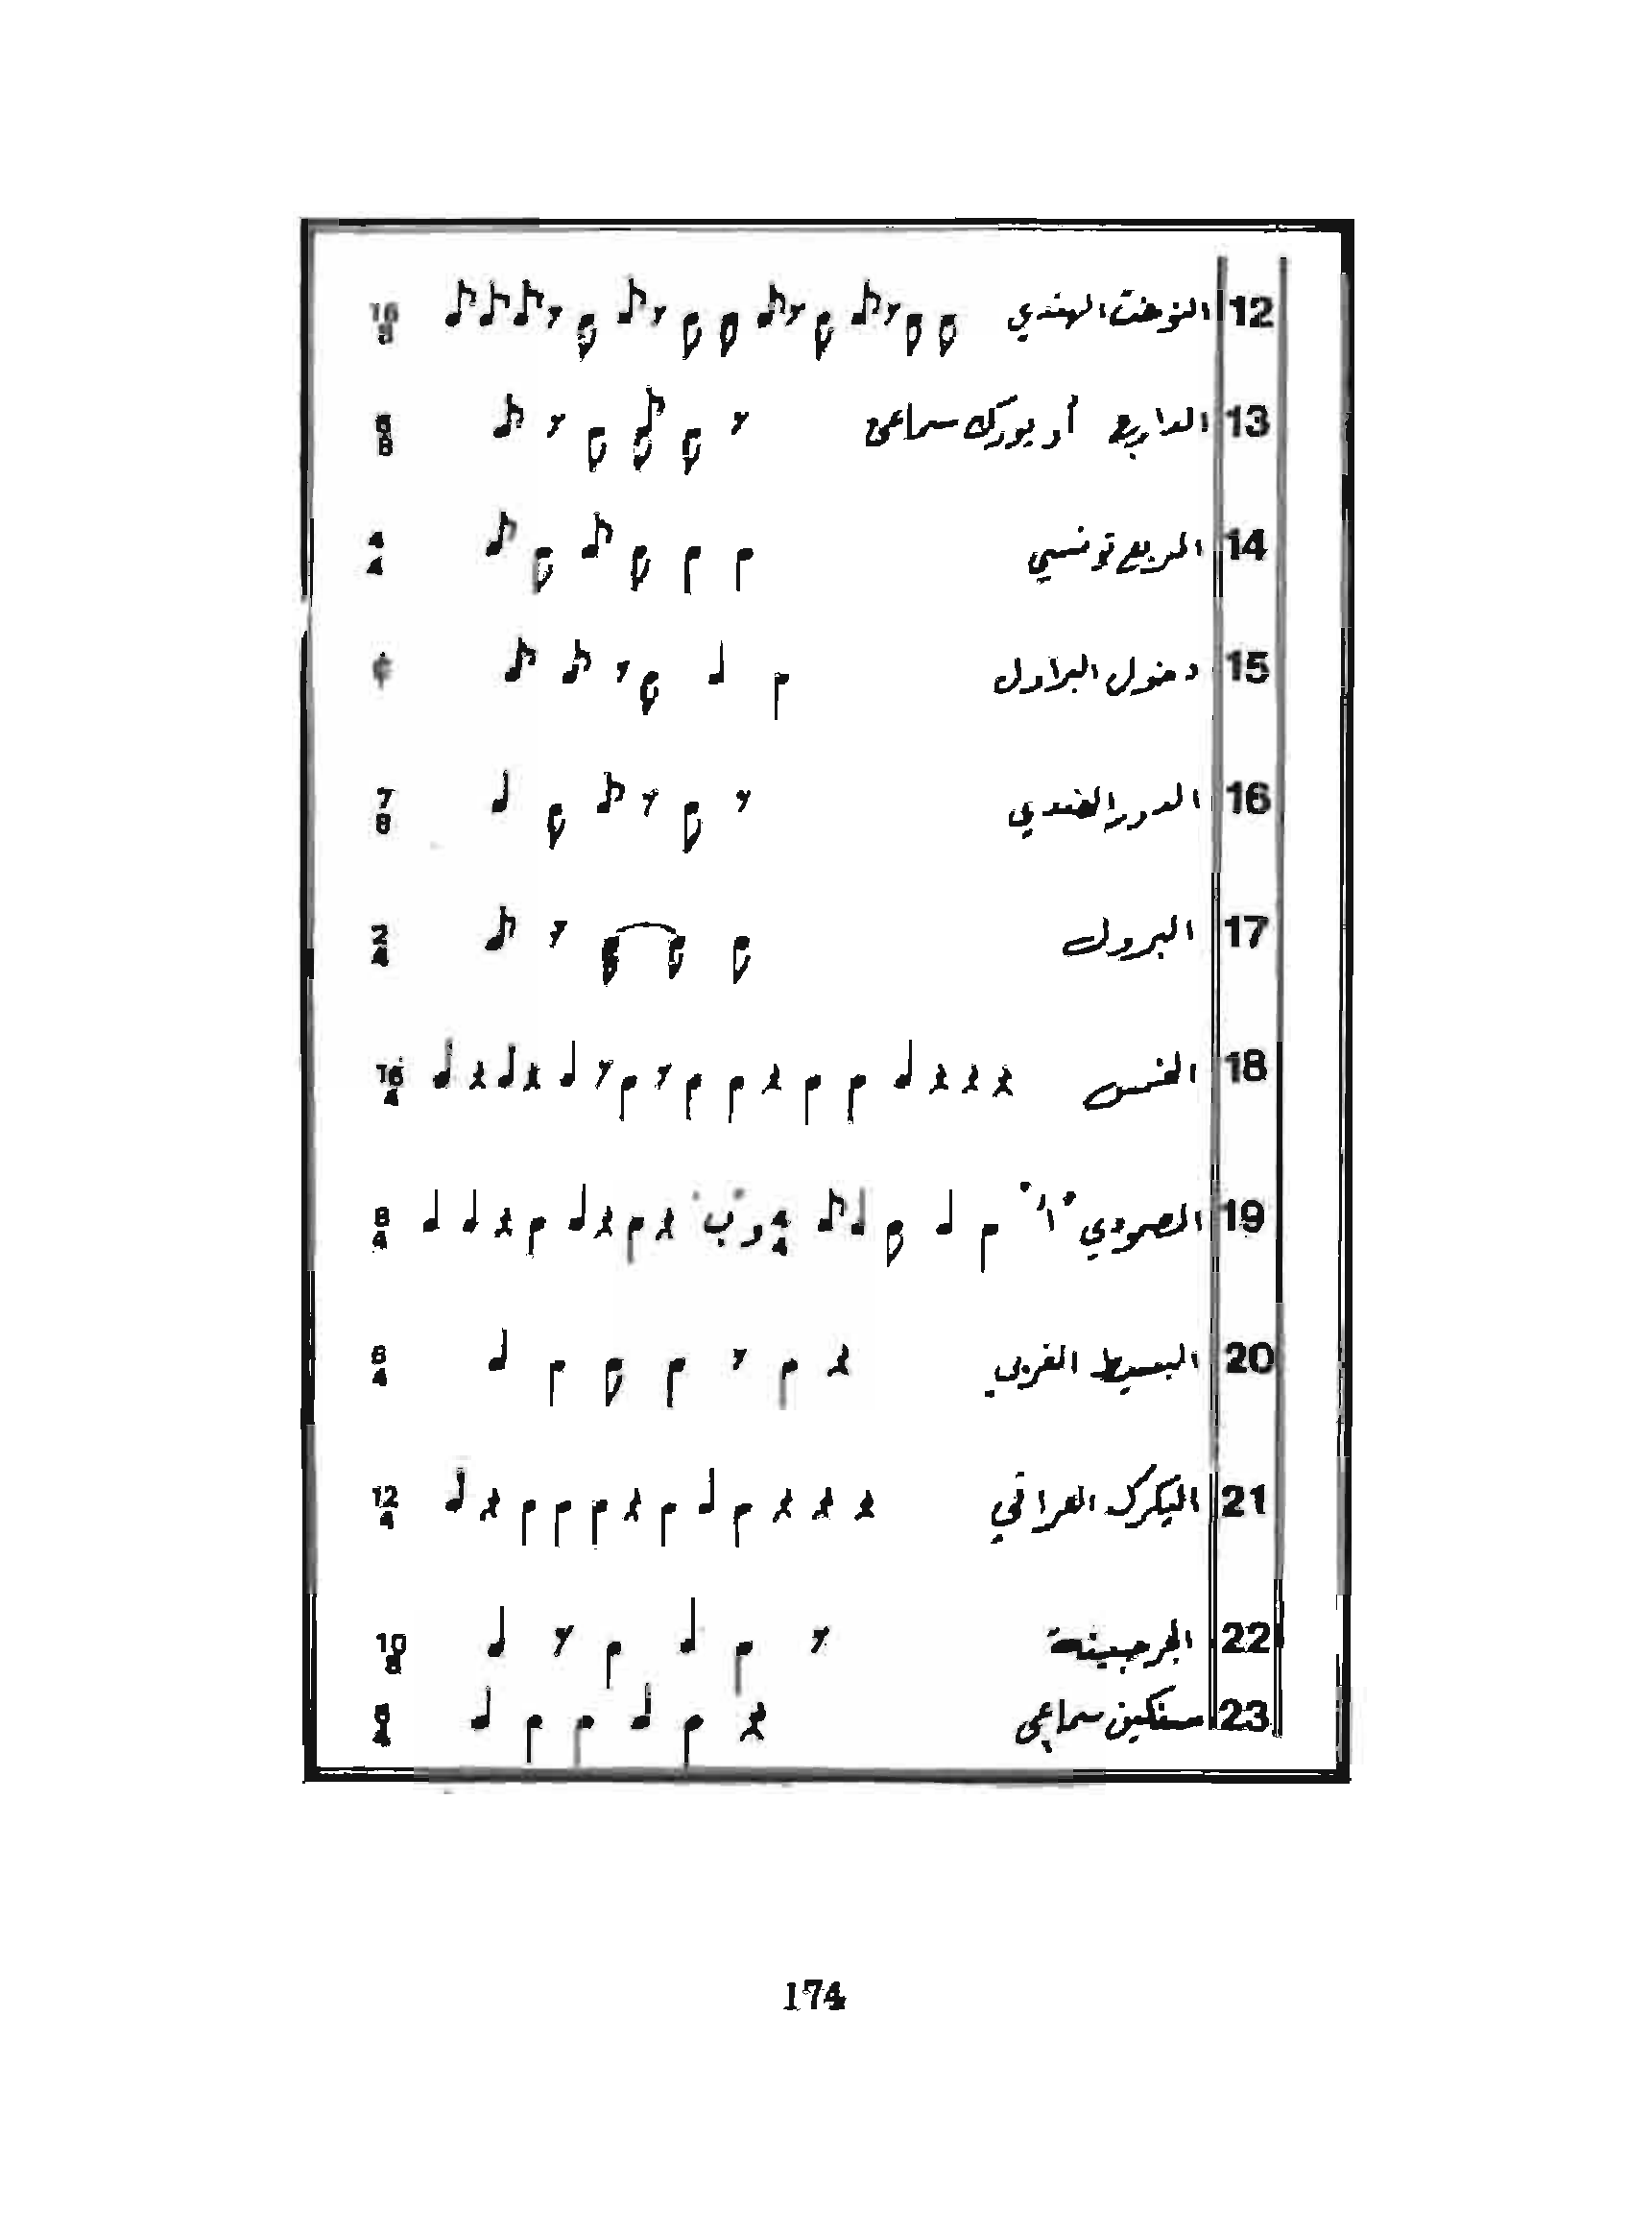 12 النوخت الهندي 16 8
13 الدارج أو يورك سماعي 6 8
14 المربع تونسي 4 4
15 دخول البراول
16 الدور الهندي 7 8
17 البرول 2 4
18 الخمس 16 4
19 الصمودي "ا" 4 4 و "ب" 8 4
20 البسيط الغربي 6 4
21 اليكرك العراقي 12 4
22 الجرجينة 10 8
23 سنكين سماعي 6 4
174